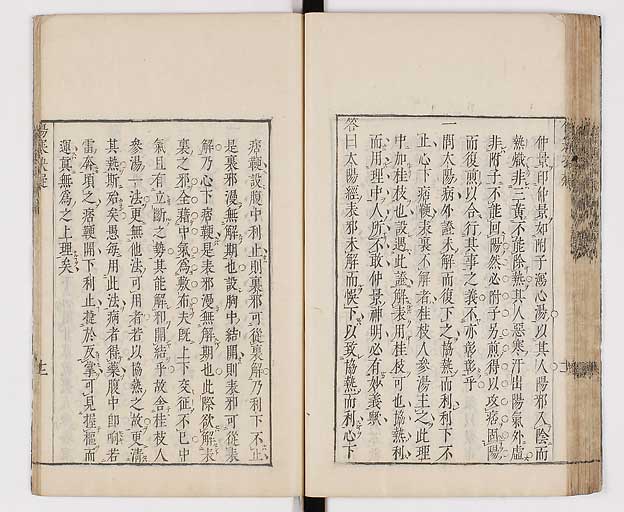 仲景即仲景如附子瀉心湯以其人陽邪入陰而
熱熾非三黃不能除熱其人惡寒汗出陽氣外虛
非附子不能回陽然必附子另煎得以攻痞固陽
而復煎以合行其事之義不亦彰彰乎
一問太陽病外證未解而復下之協熱而利利下不
止心下痞鞕表裏不解者桂枝人參湯主之此理
中加桂枝也設遇此證解表用桂枝可也協熱利
而用理中人所不敢仲景神明必有妙義歟
答曰太陽經表邪未解而悞下以致協熱而利心下
痞鞕設腹中利止則裏邪可從裏解乃利下不止
是裏邪漫無解期也設胸中結開則表邪可從表
解乃心下痞鞕是表邪漫無解期也此際欲解表
裏之邪全藉中氣爲敷布夫既上下交征不已中
氣且有立斷之勢其能解和開結乎故舍桂枝人
參湯一法更無他法可用者若以協熱之故更清
其熱斯殆矣愚每用此法病者得藥腹中即响若
雷奔頃之痞鞕開下利止捷於反掌可見握樞而
運眞無爲之上理矣